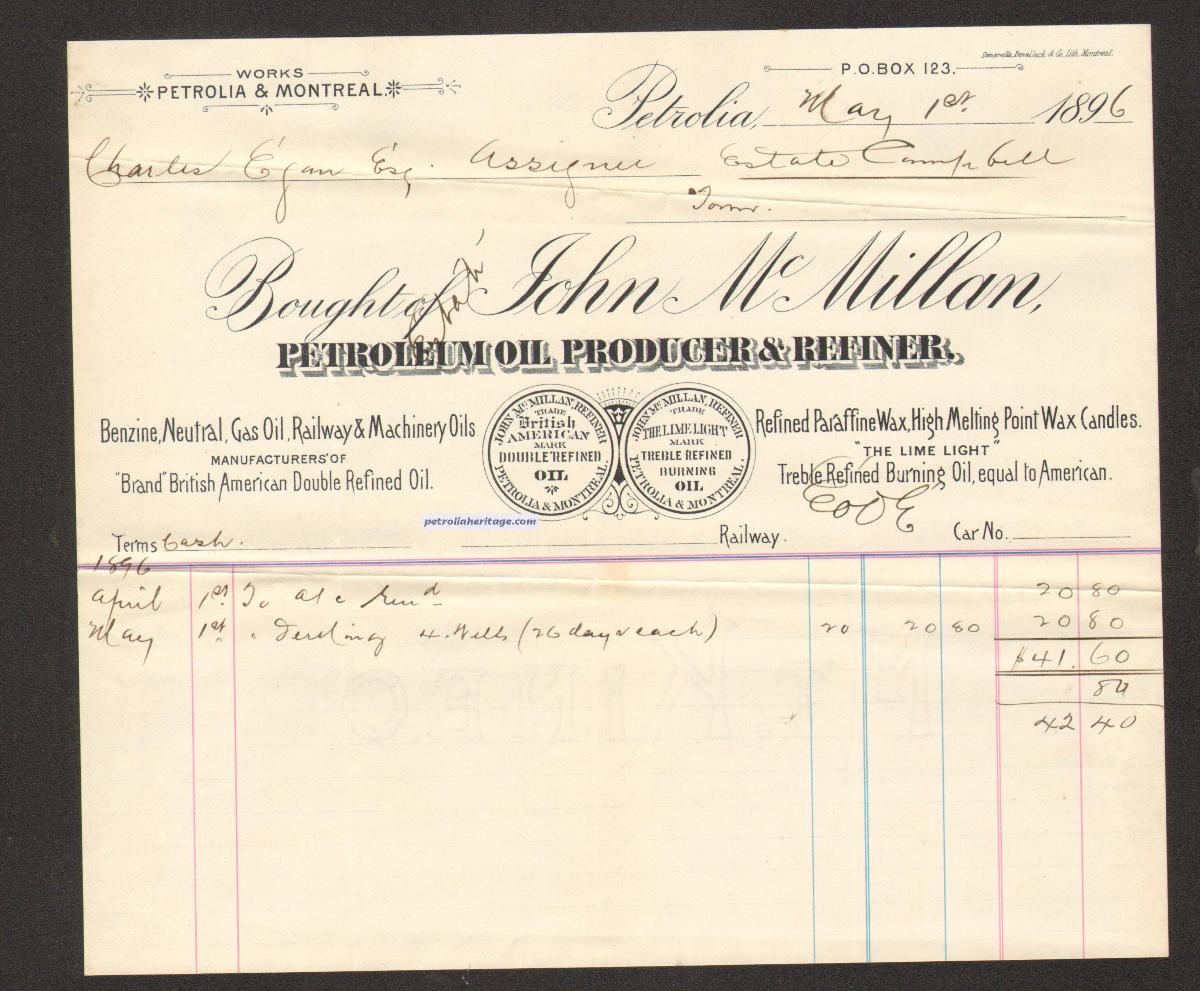 Somerville, Benallack & Co. Lith. Montreal.
WORKS
PETROLIA & MONTREAL.
P.O. BOX 123.
Petrolia, May 1st. 1896
Charles Egan Esq. Assignee Estate Campbell
Town.
Bought of Estate John McMillan,
PETROLEUM OIL PRODUCER & REFINER.
Benzine, Neutral, Gas Oil, Railway & Machinery Oils
MANUFACTURERS OF
"Brand" British American Double Refined Oil.
JOHN McMILLAN, REFINER
TRADE
British
AMERICAN
MARK
DOUBLE REFINED
OIL
PETROLIA & MONTREAL
JOHN McMILLAN, REFINER
TRADE
THE LIME LIGHT
MARK
TREBLE REFINED
BURNING
OIL
PETROLIA & MONTREAL.
Refined Paraffine Wax, High Melting Point Wax Candles.
"THE LIME LIGHT"
Treble Refined Burning Oil, equal to American.
E o O E
petroliaheritage.com
Terms Cash. Railway. Car No.
1896
April 1st To a/c Rend 20 80
May 1st " 4 Wells (26 days each) 20 20 80 20 80
$41.60
80
42 40